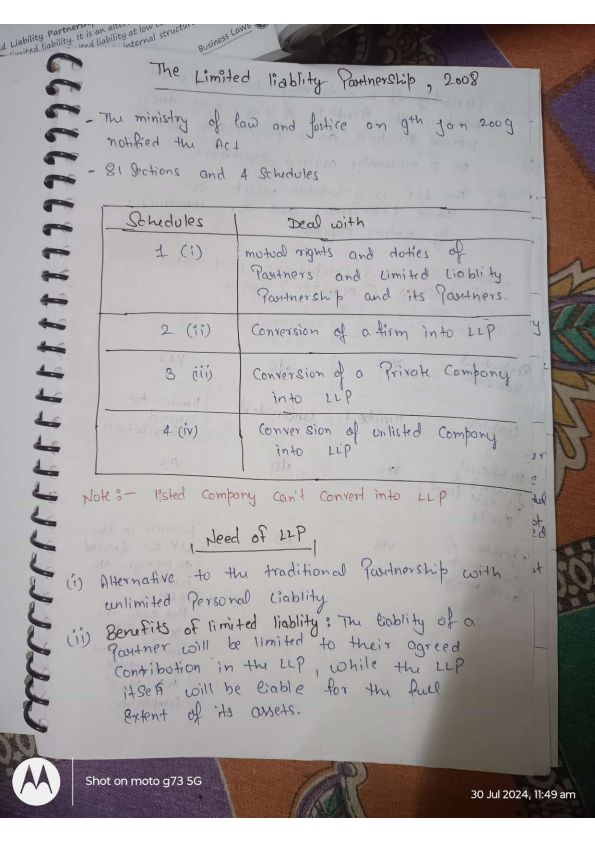 d Liability Partners
limited liability. It is an alter
ited liability at low c
internal structur
Business Laws
The Limited liablity Partnership, 2008
- The ministry of law and Justice on 9th Jan 2009
notified the Act
- 81 Sections and 4 Schedules
Schedules Deal with
1 (i) mutual rights and duties of
Partners and Limited Lioblity
Partnership and its Partners.
2 (ii) Conversion of a firm into LLP
3 (iii) Conversion of a Private Company
into LLP
4 (iv) Conversion of unlisted Company
into LLP
Note :- listed Company can't Convert into LLP
Need of LLP
(i) Alternative to the traditional Partnership with
unlimited Personal Liablity.
(ii) Benefits of limited liablity : The liablity of a
Partner will be limited to their agreed
Contribution in the LLP, while the LLP
itself will be liable for the full
Extent of its assets.
Shot on moto g73 5G
30 Jul 2024, 11:49 am